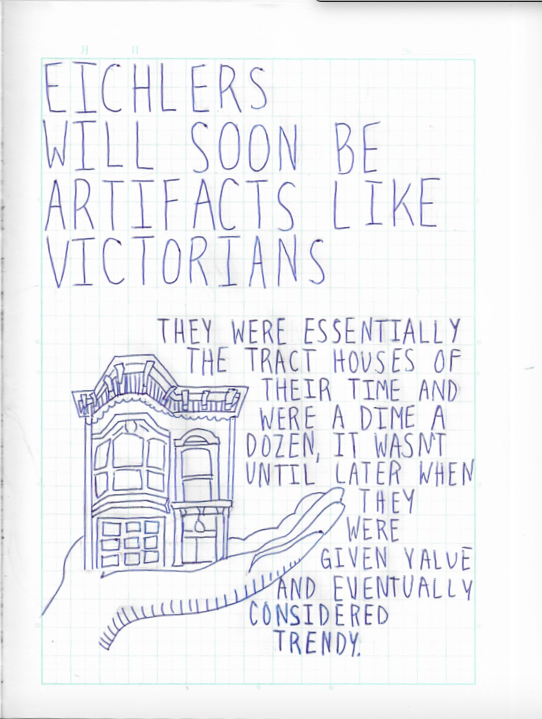 EICHLERS
WILL SOON BE
ARTIFACTS LIKE
VICTORIANS
THEY WERE ESSENTIALLY
THE TRACT HOUSES OF
THEIR TIME AND
WERE A DIME A
DOZEN, IT WASNT
UNTIL LATER WHEN
THEY
WERE
GIVEN VALUE
AND EVENTUALLY
CONSIDERED
TRENDY.